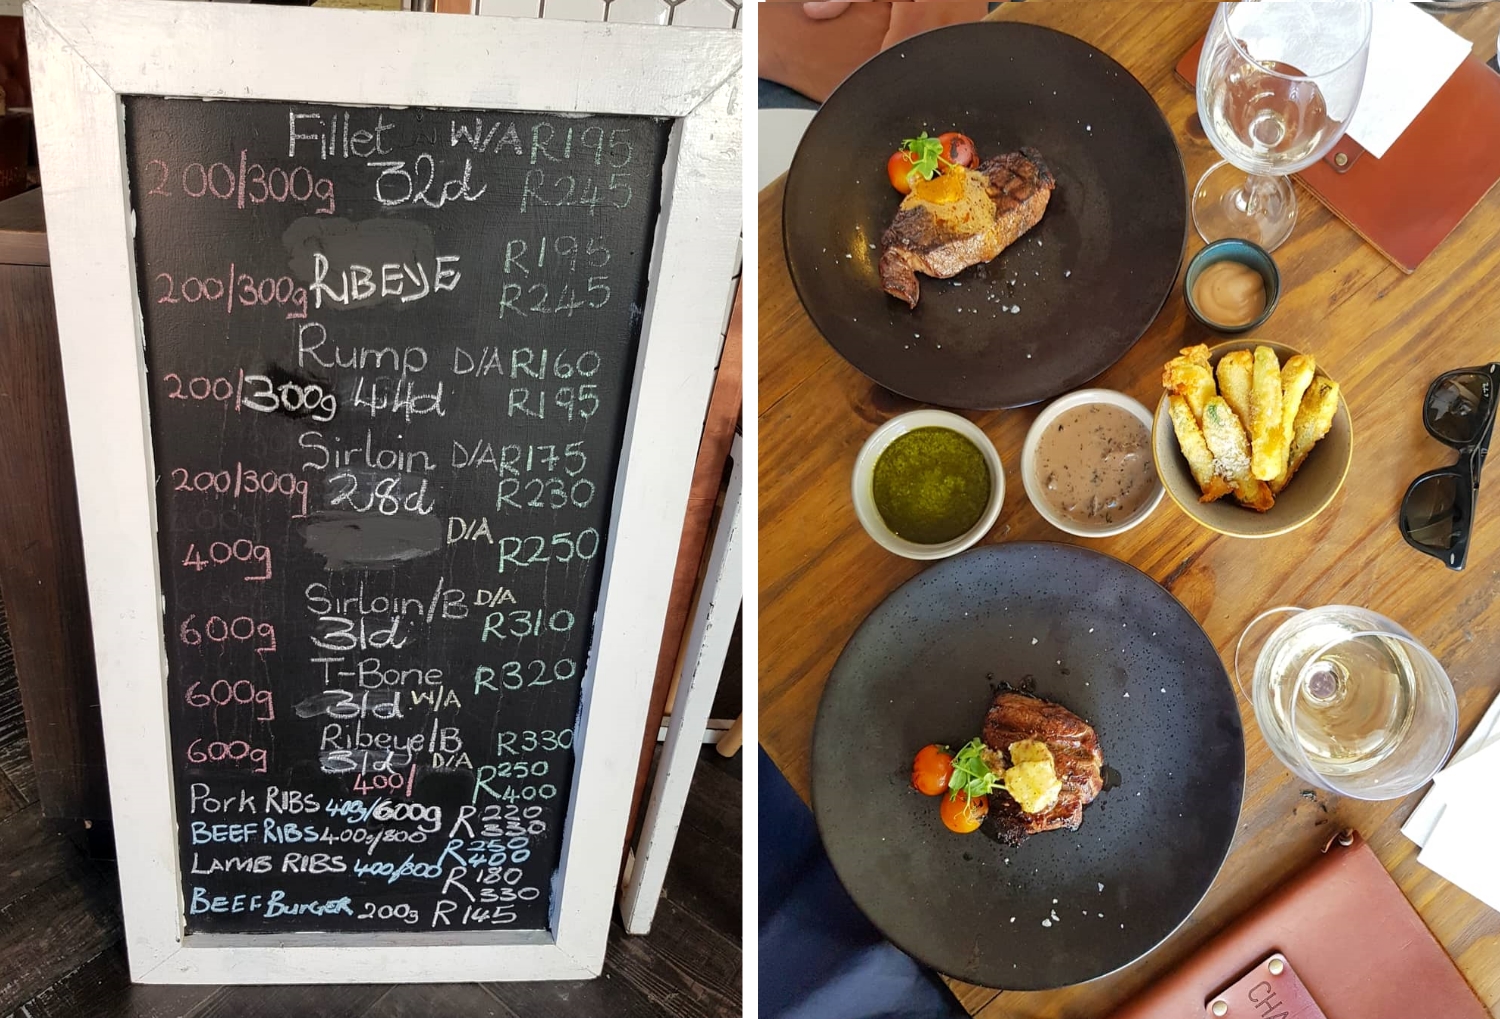 Fillet W/A R195
200/300g 32d R245
R195
200/300g RIBEYE R245
Rump D/A R160
200/300g 44d R195
Sirloin D/A R175
200/300g 28d R230
D/A
400g R250
Sirloin/B D/A
600g 31d R310
T-Bone R320
600g 31d W/A
Ribeye/B R330
600g 31d D/A R250
400/ R400
Pork RIBS 400g/600g R220
R330
BEEF RIBS 400g/800 R250
R400
LAMB RIBS 400g/800 R180
R330
BEEF BURGER 200g R145
CHA